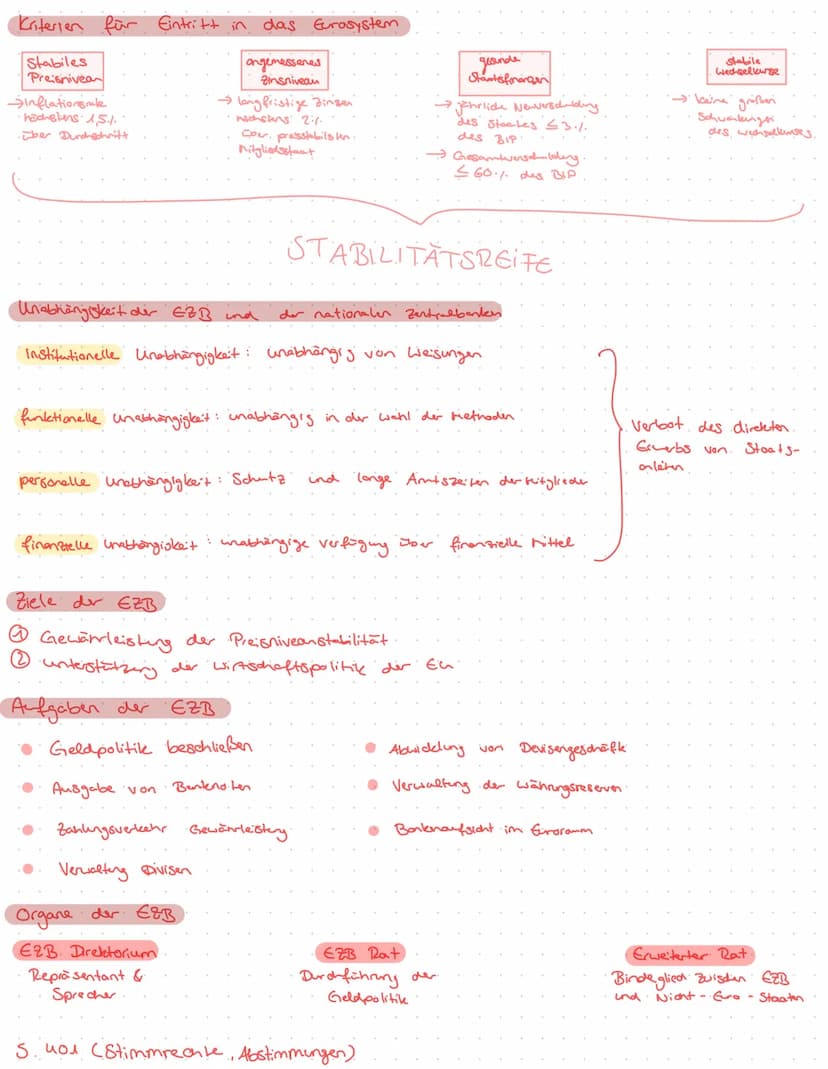 Kriterien für Eintritt in das Eurosystem
Stabiles
Preisniveau
→ Inflationsrate
höchstens 1,5%
über Durchschnitt
angemessenes
Zinsniveau
→ langfristige Zinsen
höchstens 2%
über preisstabilsten
Mitgliedsstaat
gesunde
Staatsfinanzen
→ jährliche Neuverschuldung
des Staates ≤ 3%
des BIP
→ Gesamtverschuldung
≤ 60% des BIP
stabile
Wechselkurse
→ keine großen
Schwankungen
des Wechselkurses
STABILITÄTSREIFE
Unabhängigkeit der EZB und der nationalen Zentralbanken
Institutionelle Unabhängigkeit: unabhängig von Weisungen
funktionelle Unabhängigkeit: unabhängig in der Wahl der Methoden
personelle Unabhängigkeit: Schutz und lange Amtszeiten der Mitglieder
finanzielle Unabhängigkeit: unabhängige Verfügung über finanzielle Mittel
Verbot des direkten
Erwerbs von Staats-
anleihen
Ziele der EZB
① Gewährleistung der Preisniveaustabilität
② Unterstützung der Wirtschaftspolitik der EU
Aufgaben der EZB
• Geldpolitik beschließen
• Ausgabe von Banknoten
• Zahlungsverkehr Gewährleistung
• Verwaltung Divisen
• Abwicklung von Devisengeschäfte
• Verwaltung der Währungsreserven
• Bankenaufsicht im Euroraum
Organe der EZB
EZB Direktorium
Repräsentant &
Sprecher
EZB Rat
Durchführung der
Geldpolitik
Erweiterter Rat
Bindeglied zwischen EZB
und Nicht-Euro-Staaten
S. 401 (Stimmrechte, Abstimmungen)